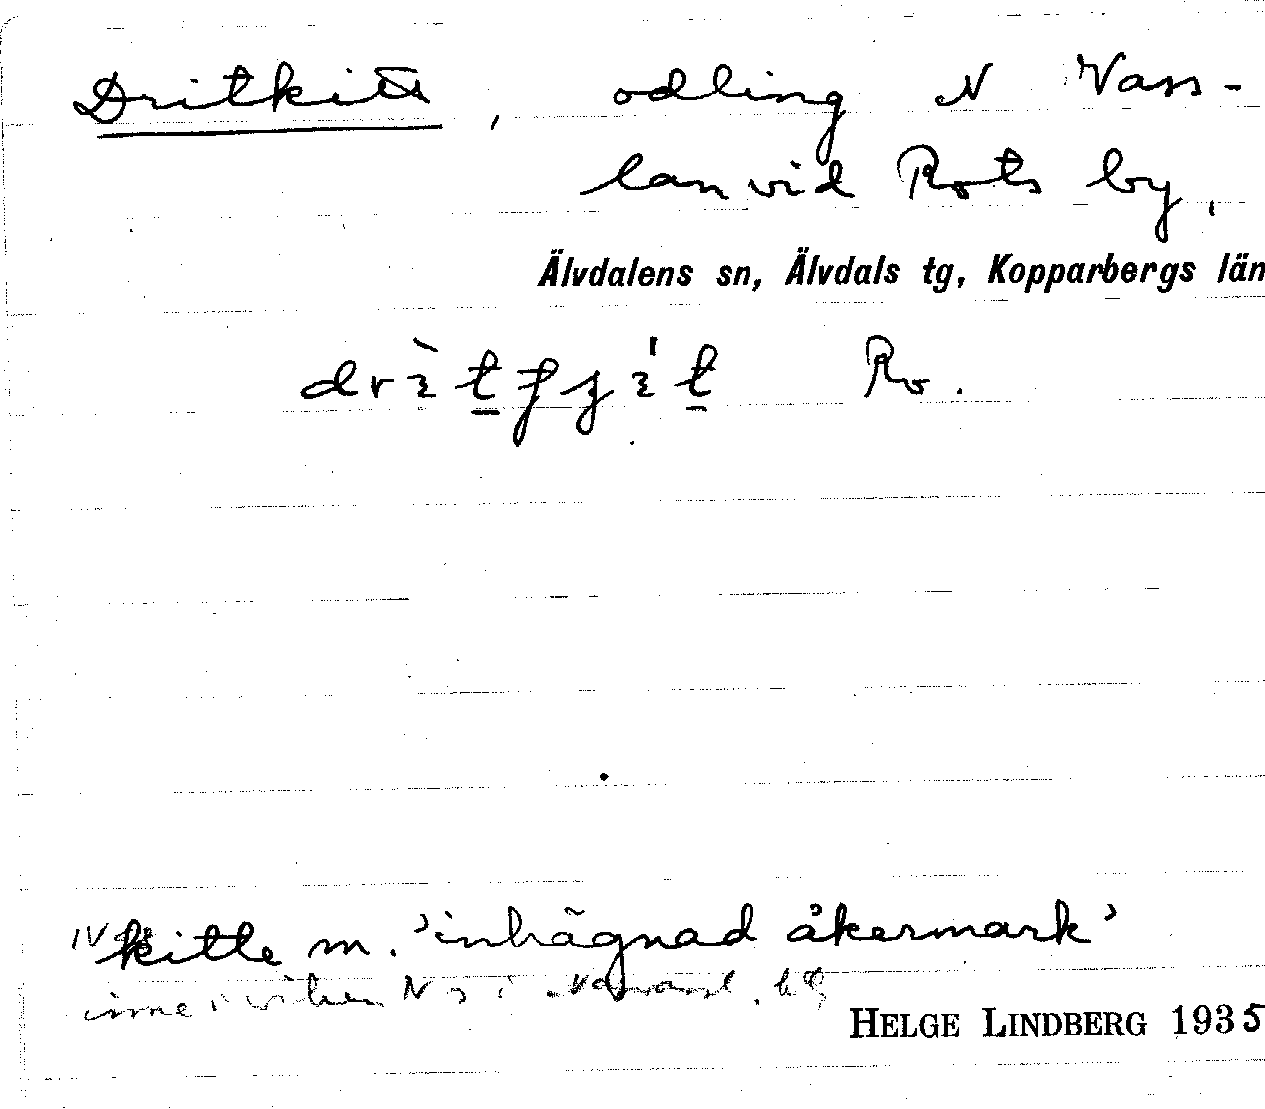 Dritkitt, odling N Vass-
lan vid Rots by,
Älvdalens sn, Älvdals tg, Kopparbergs län
Ro.
kitte m. 'inhägnad åkermark'
inne i viken N
HELGE LINDBERG 1935